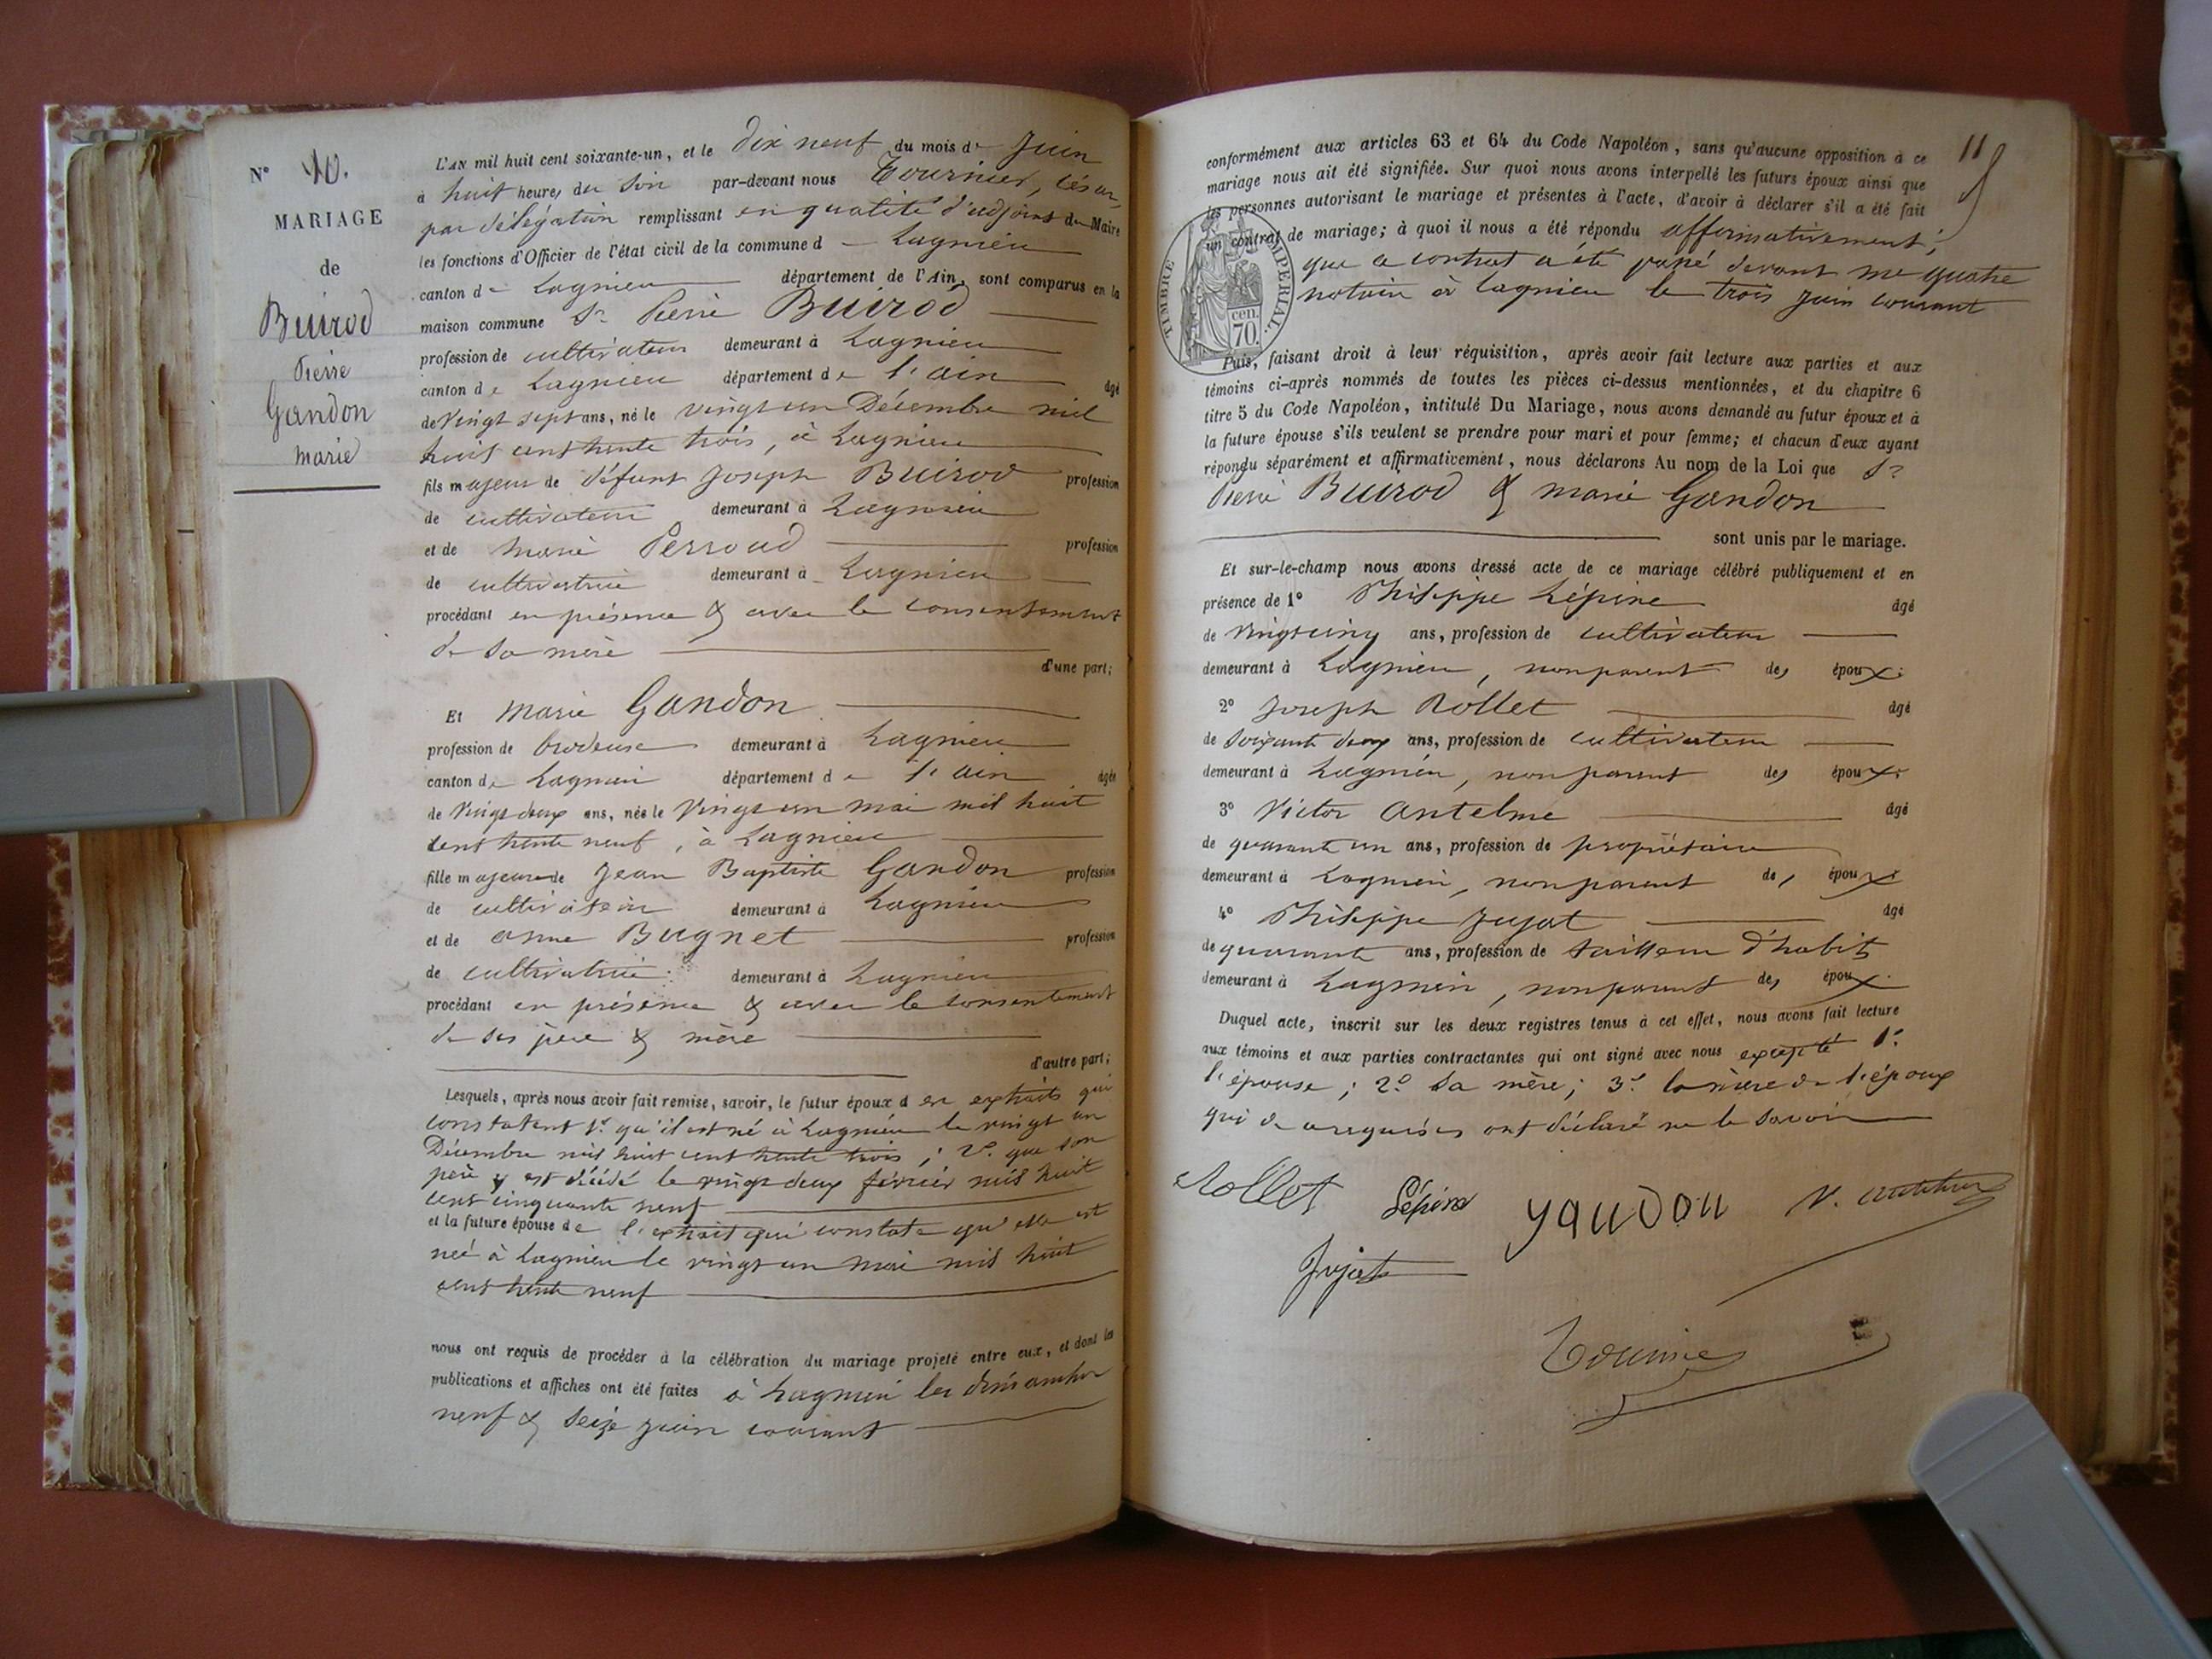 N° 10.
MARIAGE
de
Buirod
Pierre
Gandon
marie
L'AN mil huit cent soixante-un, et le dix neuf du mois de Juin
à huit heures du soir par-devant nous Tournier, César,
par délégation remplissant en qualité d'adjoint du Maire
les fonctions d'Officier de l'état civil de la commune d Lagnieu
canton de Lagnieu département de l'Ain, sont comparus en la
maison commune Sr Pierre Buirod
profession de cultivateur demeurant à Lagnieu
canton de Lagnieu département de l'ain âgé
de vingt sept ans, né le vingt un Décembre mil
huit cent trente trois, à Lagnieu
fils majeur de défunt Joseph Buirod profession
de cultivateur demeurant à Lagnieu
et de Marie Perroud profession
de cultivatrice demeurant à Lagnieu
procédant en présence & avec le consentement
de sa mère
d'une part;
Et Marie Gandon
profession de brodeuse demeurant à Lagnieu
canton de Lagnieu département de l'ain âgée
de vingt deux ans, née le vingt un mai mil huit
cent trente neuf, à Lagnieu
fille majeure de Jean Baptiste Gandon profession
de cultivateur demeurant à Lagnieu
et de anne Bugnet profession
de cultivatrice demeurant à Lagnieu
procédant en présence & avec le consentement
de ses père & mère
d'autre part;
Lesquels, après nous avoir fait remise, savoir, le futur époux d en extraits qui
constatent 1° qu'il est né à Lagnieu le vingt un
Décembre mil huit cent trente trois; 2° que son
père y est décédé le vingt deux février mil huit
cent cinquante neuf
et la future épouse de l'extrait qui constate qu'elle est
née à Lagnieu le vingt un mai mil huit
cent trente neuf
nous ont requis de procéder à la célébration du mariage projeté entre eux, et dont les
publications et affiches ont été faites à Lagnieu les dimanches
neuf & seize juin courant
11
conformément aux articles 63 et 64 du Code Napoléon, sans qu'aucune opposition à ce
mariage nous ait été signifiée. Sur quoi nous avons interpellé les futurs époux ainsi que
les personnes autorisant le mariage et présentes à l'acte, d'avoir à déclarer s'il a été fait
un contrat de mariage; à quoi il nous a été répondu affirmativement;
que ce contrat a été passé devant me quatre
notaire à Lagnieu le trois juin courant
TIMBRE IMPÉRIAL.
cen.
70.
Puis, faisant droit à leur réquisition, après avoir fait lecture aux parties et aux
témoins ci-après nommés de toutes les pièces ci-dessus mentionnées, et du chapitre 6
titre 5 du Code Napoléon, intitulé Du Mariage, nous avons demandé au futur époux et à
la future épouse s'ils veulent se prendre pour mari et pour femme; et chacun d'eux ayant
répondu séparément et affirmativement, nous déclarons Au nom de la Loi que Sr
Pierre Buirod & marie Gandon
sont unis par le mariage.
Et sur-le-champ nous avons dressé acte de ce mariage célébré publiquement et en
présence de 1° Philippe Lépine âgé
de vingt cinq ans, profession de cultivateur
demeurant à Lagnieu, non parent des époux.
2° Joseph Rollet âgé
de soixante deux ans, profession de cultivateur
demeurant à Lagnieu, non parent des époux.
3° Victor Antelme âgé
de quarante un ans, profession de propriétaire
demeurant à Lagnieu, non parent des époux
4° Philippe Jujat âgé
de quarante ans, profession de tailleur d'habits
demeurant à Lagnieu, non parent des époux.
Duquel acte, inscrit sur les deux registres tenus à cet effet, nous avons fait lecture
aux témoins et aux parties contractantes qui ont signé avec nous excepté 1°
l'épouse; 2° sa mère; 3° la mère de l'époux
qui de ce requises ont déclaré ne le savoir
Rollet Lépine gaudon V. antelme
Jujat
Tournier